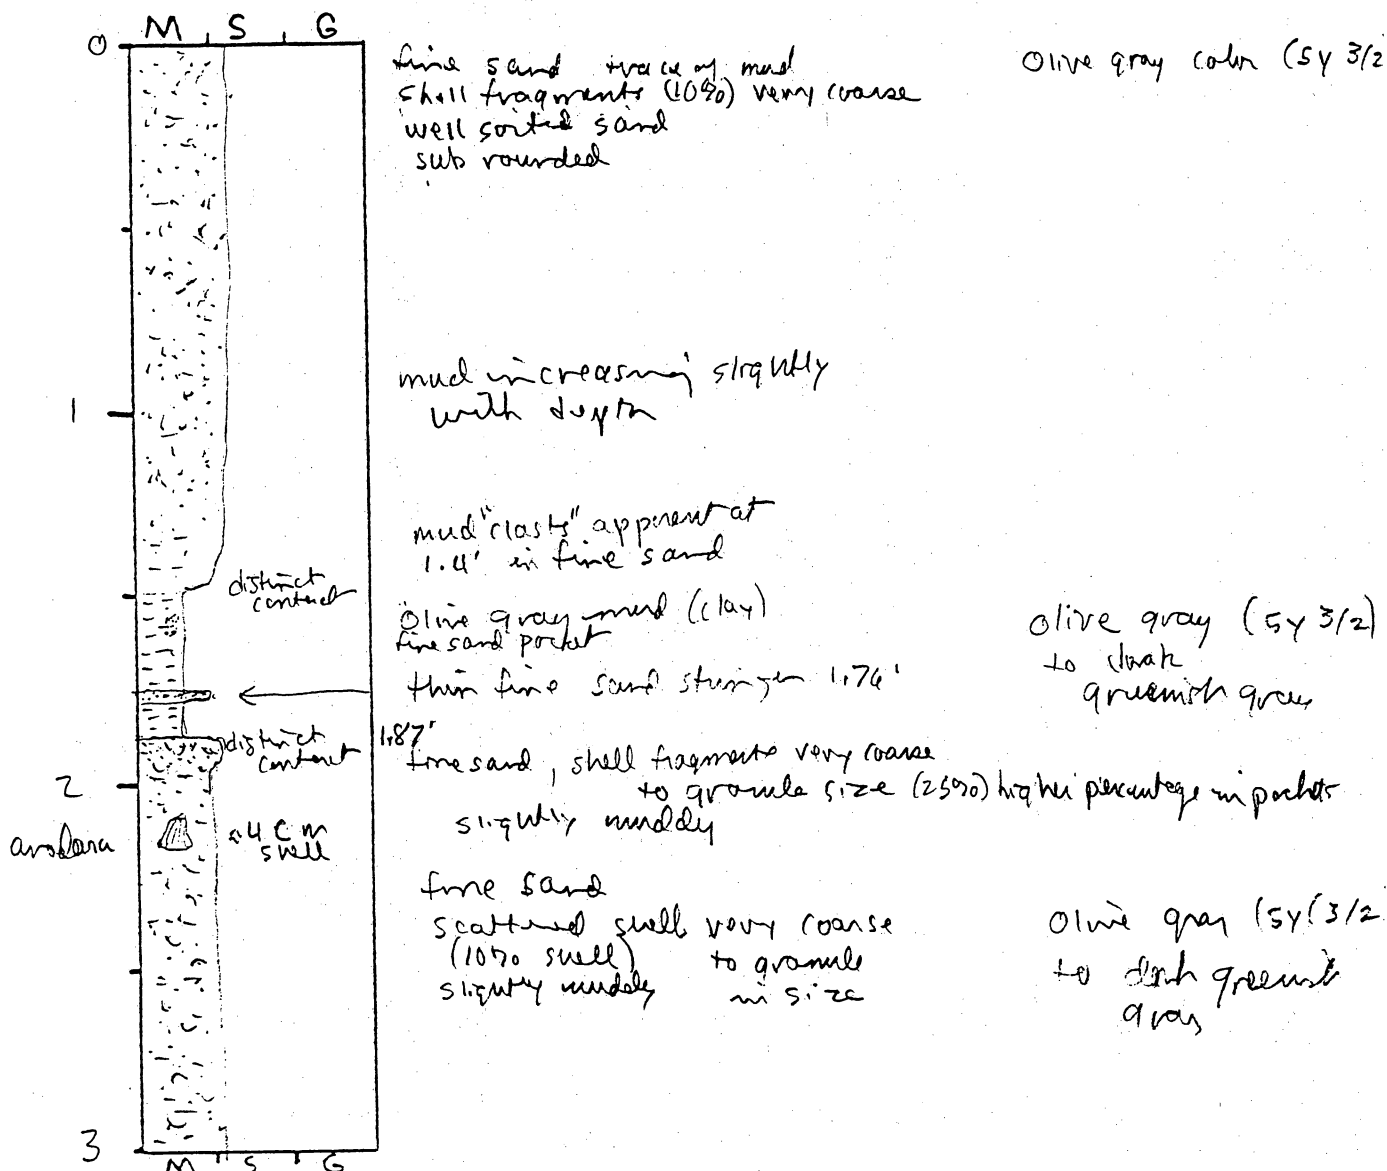 M S G
0
fine sand trace of mud
shell fragments (10%) very coarse
well sorted sand
sub rounded
Olive gray color (5Y 3/2
mud increasing slightly
with depth
1
mud "clasts" apparent at
1.4' in fine sand
distinct
contact
Olive gray mud (clay)
fine sand pocket
Olive gray (5Y 3/2)
to dark
greenish gray
thin fine sand stringer 1.76'
distinct
contact
1.87'
fine sand, shell fragments very coarse
to granule size (25%) higher percentage in pockets
slightly muddy
2
4 cm
shell
fine sand
scattered shell very coarse
(10% shell) to granule
slightly muddy in size
Olive gray (5Y(3/2
to dark greenish
gray
3
M S G